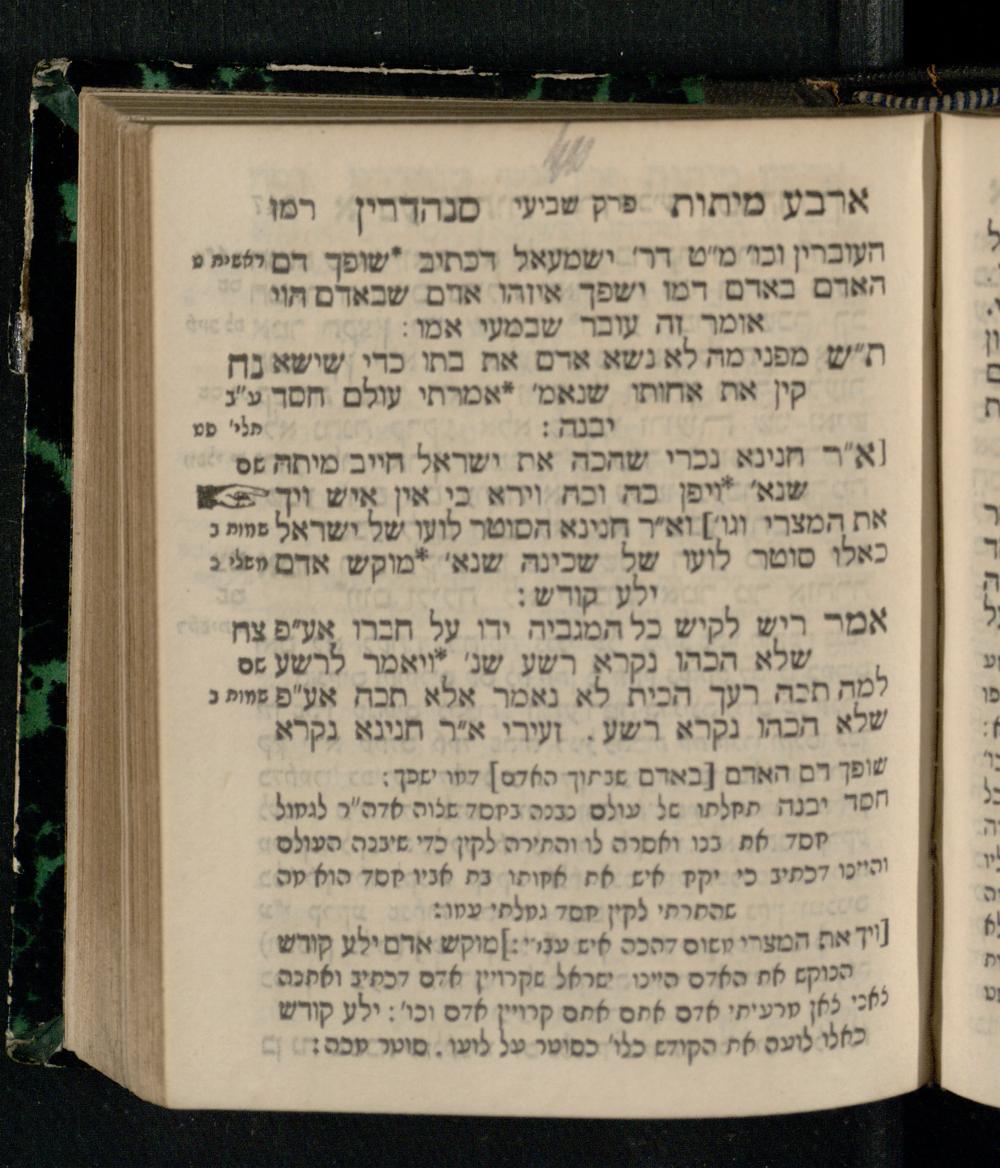 ארבע מיתות פרק שביעי סנהדרין רמז
העוברין וכו' מ"ט דר' ישמעאל דכתיב *שופך דם ראשית ט
האדם באדם דמו ישפך איזהו אדם שבאדם הוי
אומר זה עובר שבמעי אמו :
ת"ש מפני מה לא נשא אדם את בתו כדי שישא נח
קין את אחותו שנאמ' *אמרתי עולם חסד ע"ב
יבנה : תלי' פט
[א"ר חנינא נכרי שהכה את ישראל חייב מיתה שם
שנא' *ויפן כה וכה וירא כי אין איש ויך
את המצרי וגו'] וא"ר חנינא הסוטר לועו של ישראל שמות ב
כאלו סוטר לועו של שכינה שנא' *מוקש אדם משלי כ
ילע קודש :
אמר ריש לקיש כל המגביה ידו על חברו אע"פ צח
שלא הכהו נקרא רשע שנ' *ויאמר לרשע שם
למה תכה רעך הכית לא נאמר אלא תכה אע"פ שמות ב
שלא הכהו נקרא רשע . זעירי א"ר חנינא נקרא
שופך דם האדם [באדם שבתוך האדם] דמו ישפך :
חסד יבנה תחלתו של עולם נבנה בחסד שלוה אדה"ר לגמול
חסד את בנו ואסרה לו והתירה לקין כדי שיבנה העולם
והיינו דכתיב כי יקח איש את אחותו בת אביו חסד הוא מה
שהתרתי לקין חסד גמלתי עמו :
[ויך את המצרי משום דהכה איש עברי :] מוקש אדם ילע קודש
הנוקש את האדם היינו ישראל שקרויין אדם דכתיב ואתנה
צאני צאן מרעיתי אדם אתם אתם קרויין אדם וכו' : ילע קודש
כאלו לועה את הקודש כלו' כסוטר על לועו . סוטר מכה :